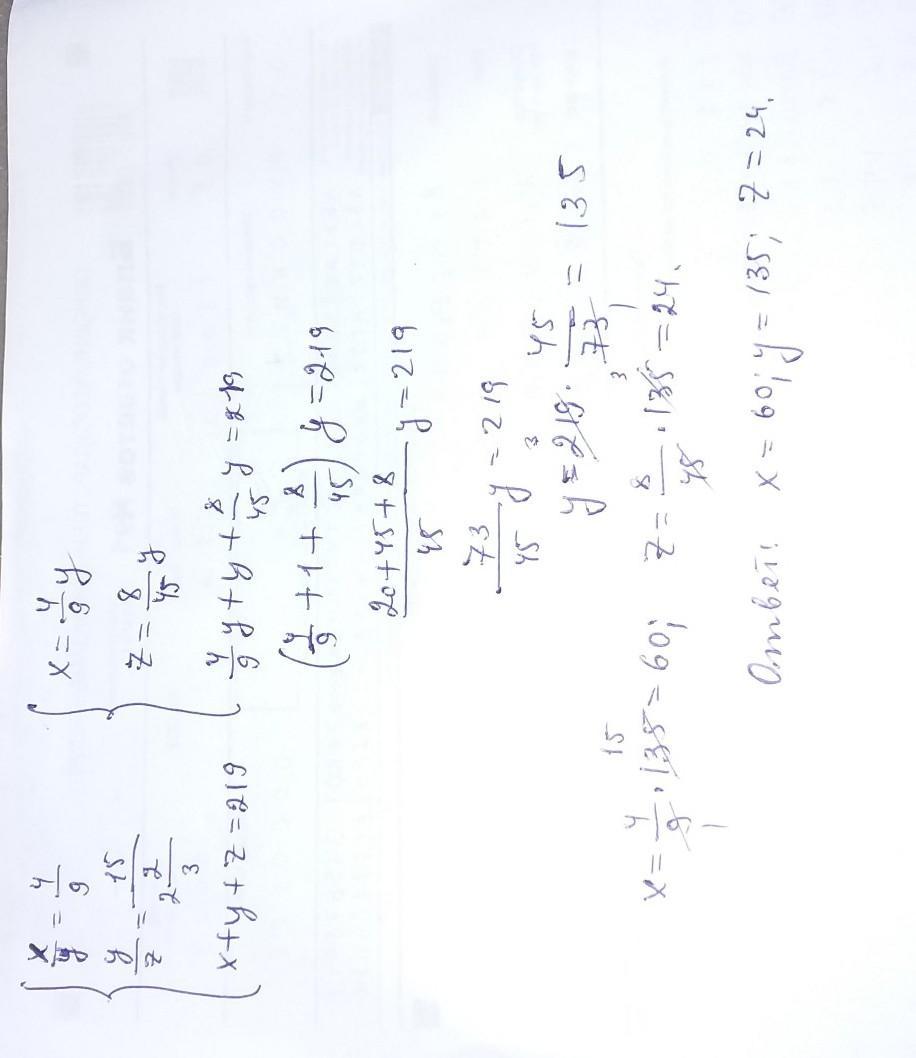 x/y = 4/9
y/z = 15/(2 2/3)
x+y+z=219
x = 4/9 y
z = 8/45 y
4/9 y + y + 8/45 y = 219
(4/9 + 1 + 8/45) y = 219
(20+45+8)/45 y = 219
73/45 y = 219
y = 219 · 45/73 = 135
x = 4/9 · 135 = 60; z = 8/45 · 135 = 24.
Ответ: x = 60; y = 135; z = 24.